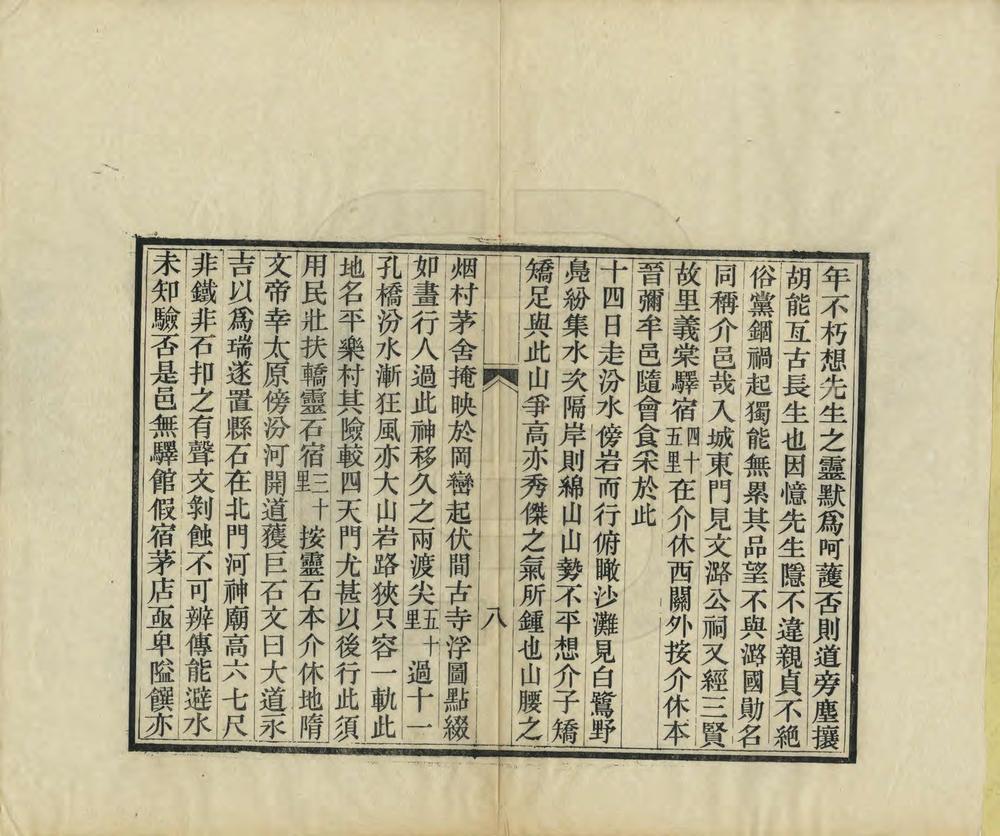 年不朽想先生之靈默爲呵護否則道旁塵攘
胡能亙古長生也因憶先生隱不違親貞不絶
俗黨錮禍起獨能無累其品望不與潞國勛名
同稱介邑哉入城東門見文潞公祠又經三賢
故里義棠驛宿四十五里在介休西關外按介休本
晉彌牟邑隨會食采於此
十四日走汾水傍岩而行俯瞰沙灘見白鷺野
鳧紛集水次隔岸則綿山山勢不平想介子矯
矯足與此山爭高亦秀傑之氣所鍾也山腰之
八
烟村茅舍掩映於岡巒起伏間古寺浮圖點綴
如畫行人過此神移久之兩渡尖五十里過十一
孔橋汾水漸狂風亦大山岩路狹只容一軌此
地名平樂村其險較四天門尤甚以後行此須
用民壯扶轎靈石宿三十里按靈石本介休地隋
文帝幸太原傍汾河開道獲巨石文曰大道永
吉以爲瑞遂置縣石在北門河神廟高六七尺
非鐵非石扣之有聲文剝蝕不可辨傳能避水
未知驗否是邑無驛館假宿茅店亟卑隘饌亦